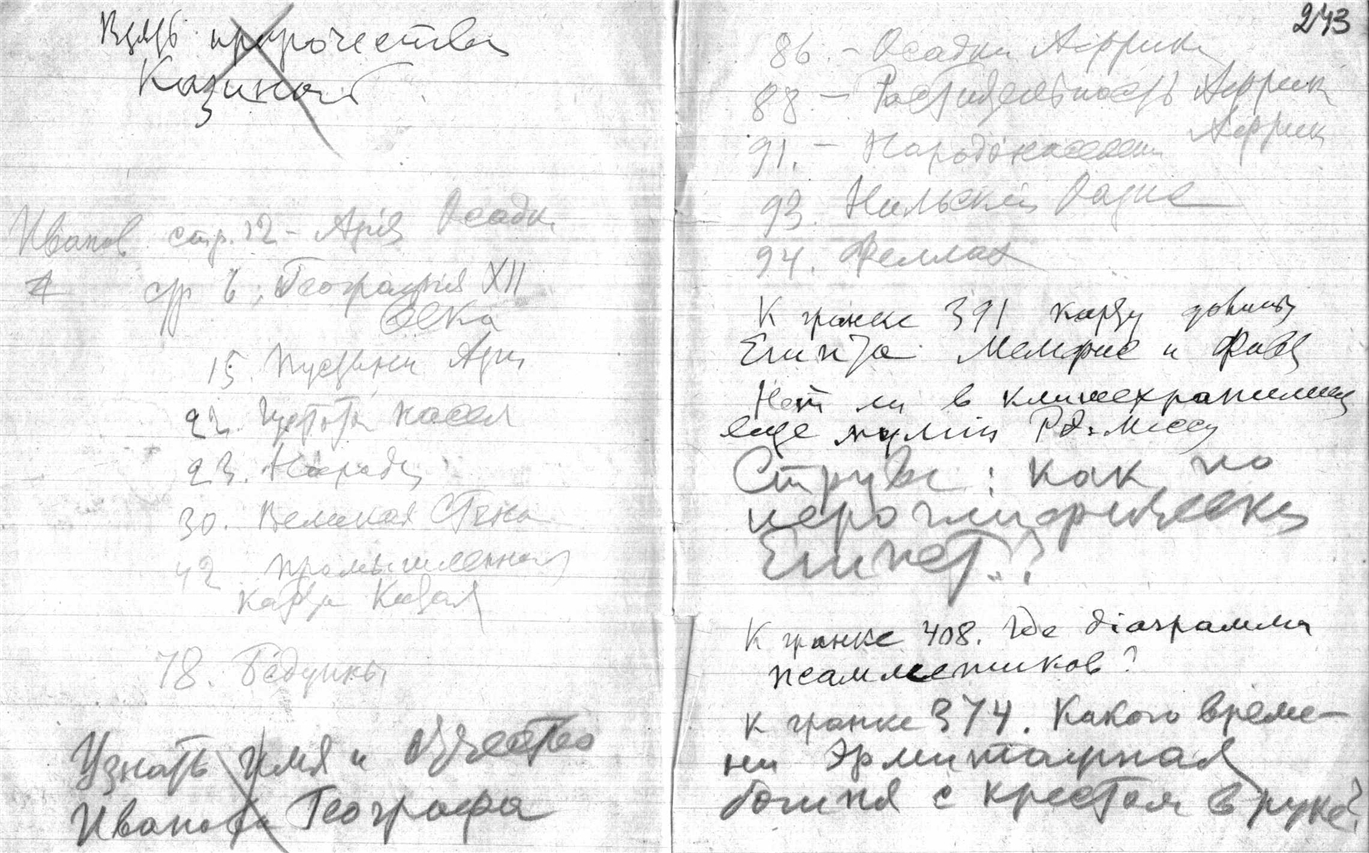 Взять пророчества
Казиной
Иванов стр. 12 - Азія Осадки
стр 6, Географія XII
века
15. Пустыни Азіи
22. Густота насел
23. Народы
30. Великая Стена
42 промышленная
карта Китая
78. Бедуины
Узнать имя и отчество
Иванова Географа
243
86. - Осадки Африки
88 - Растительность Африки
91. - Народонаселен Африки
93. Нильскій Оазис
94. Феллах
К гранке 391 карту долины
Египта Мемфис и Фивы
Нет ли в клишехранилищ
еще муміи Рамессу
Струве: как по
иероглифически
Египет?
К гранке 408. Где діаграмма
псамметиков?
К гранке 374. Какого време-
ни Эрмитажная
богиня с крестом в руке?